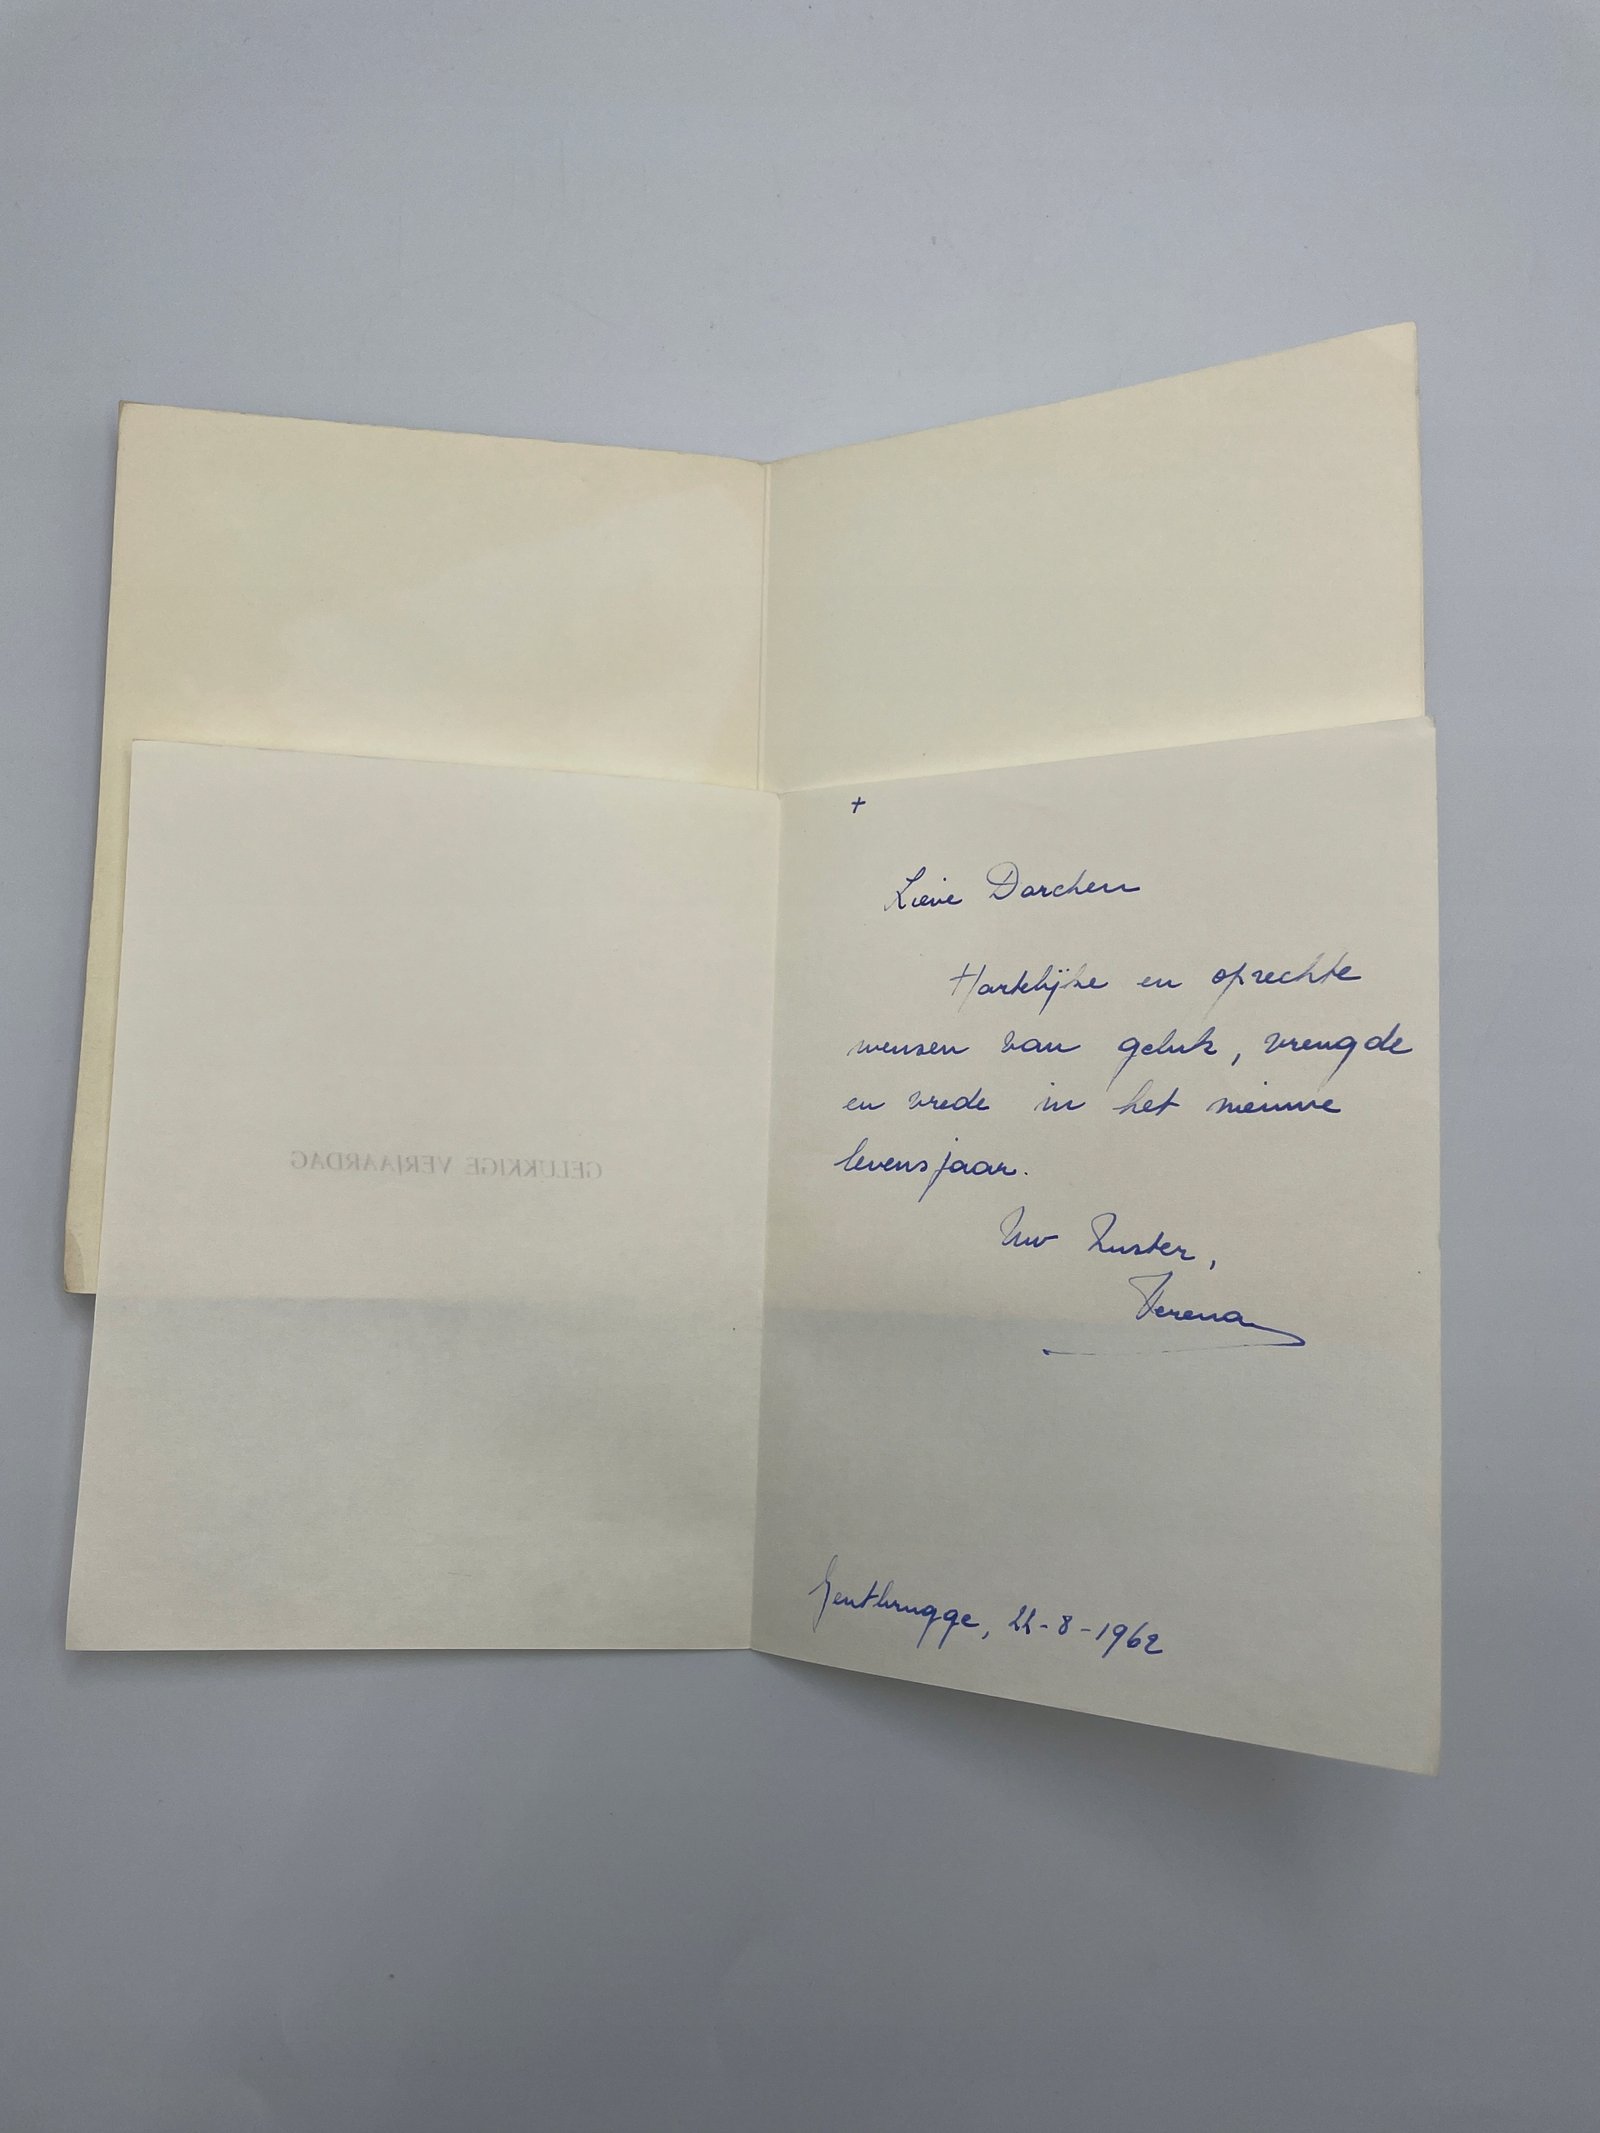 GELUKKIGE VERJAARDAG
+
Lieve Dorchen
Hartelijke en oprechte
wensen van geluk, vreugde
en vrede in het nieuwe
levensjaar.
Uw Zuster,
Verena
Gentbrugge, 22-8-1962